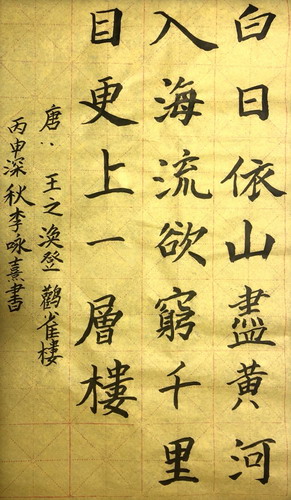 白日依山盡黃河
入海流欲窮千里
目更上一層樓
唐：王之渙登鸛雀樓
丙申深秋李咏熹書